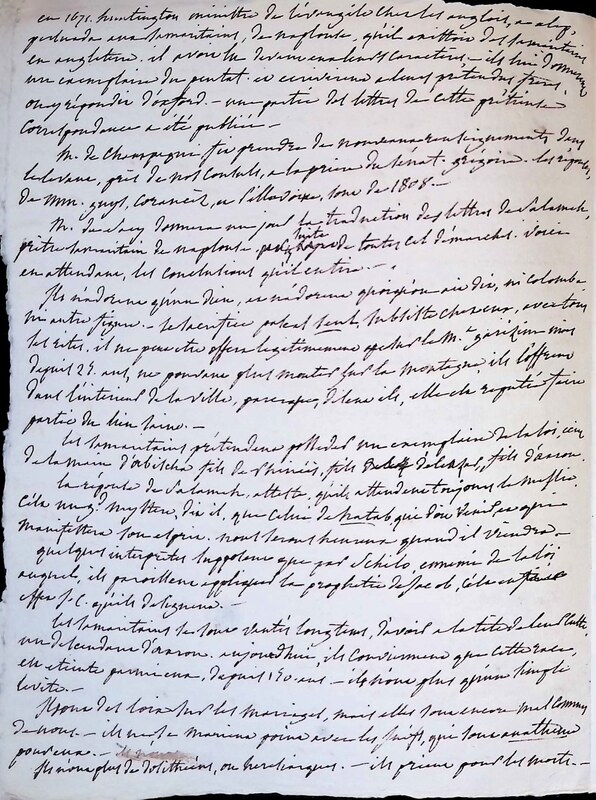 en 1671, huntington ministre de l'évangile chez les anglois, a alep,
persuada aux samaritains, de naplouse, qu'il existoit des samaritains
en angleterre. il avoit lu devant eux leurs caracteres. — ils lui donnerent
un exemplaire du pentat. et ecrivirent a leurs pretendus freres,
on y repondit d'oxford. — une partie des lettres de cette prétendue
Correspondance a été publiée. —
M. de Champagni fit prendre de nouveaux renseignements dans
le levant, près de nos Consuls, a la priere du senat. gregoire. les réponses,
de MM. guys, Corancèz, et Pillavoine, sont de 1808. —
M. de Sacy donnera un jour la traduction des lettres de Salameh,
prêtre samaritain de naplouse, suite de toutes ces démarches. voici
en attendant, les conclusions qu'il en tire. —
Ils n'adorent qu'un Dieu, et n'adorent quoiqu'on ait dit, ni colombe
ni autre figure. — le sacrifice pascal seul, subsiste chez eux, avec tous
les rites. il ne peut etre offert legitimement que sur le M.t garizim mais
depuis 25 ans, ne pouvant plus monter sur la montagne, ils l'offrent
dans l'interieur de la ville, parceque, disent ils, elle est reputée faire
partie du lieu saint. —
les samaritains prétendent posseder un exemplaire de la loi, écrit
de la main d'abischa fils de Phinées, fils d'eleazar, fils d'aaron.
la reponse de Salameh, atteste, qu'ils attendent toujours le messie.
C'est un g.d mystere, dit il, que celui de hatab qui doit venir et qui
manifestera son esprit. nous serons heureux quand il viendra —
quelques interpretes supposent que par Schilo, ennemi de la loi
auquel, ils paroissent appliquer la prophetie de Jacob, c'est en
effet J. C. qu'ils designent. —
Les samaritains se sont vantés longtems, d'avoir a la tête de leur culte,
un descendant d'aaron. aujourdhui, ils Conviennent que cette race,
est eteinte parmi eux, depuis 150 ans. — ils n'ont plus qu'un simple
levite. —
Ils ont des loix sur les mariages, mais elles sont encore mal connues
de nous. — ils ne se marient point avec les juifs, qui sont anathème
pour eux. —
Ils n'ont plus de dosithéens, ou heresiarques. — ils prient pour les morts. —